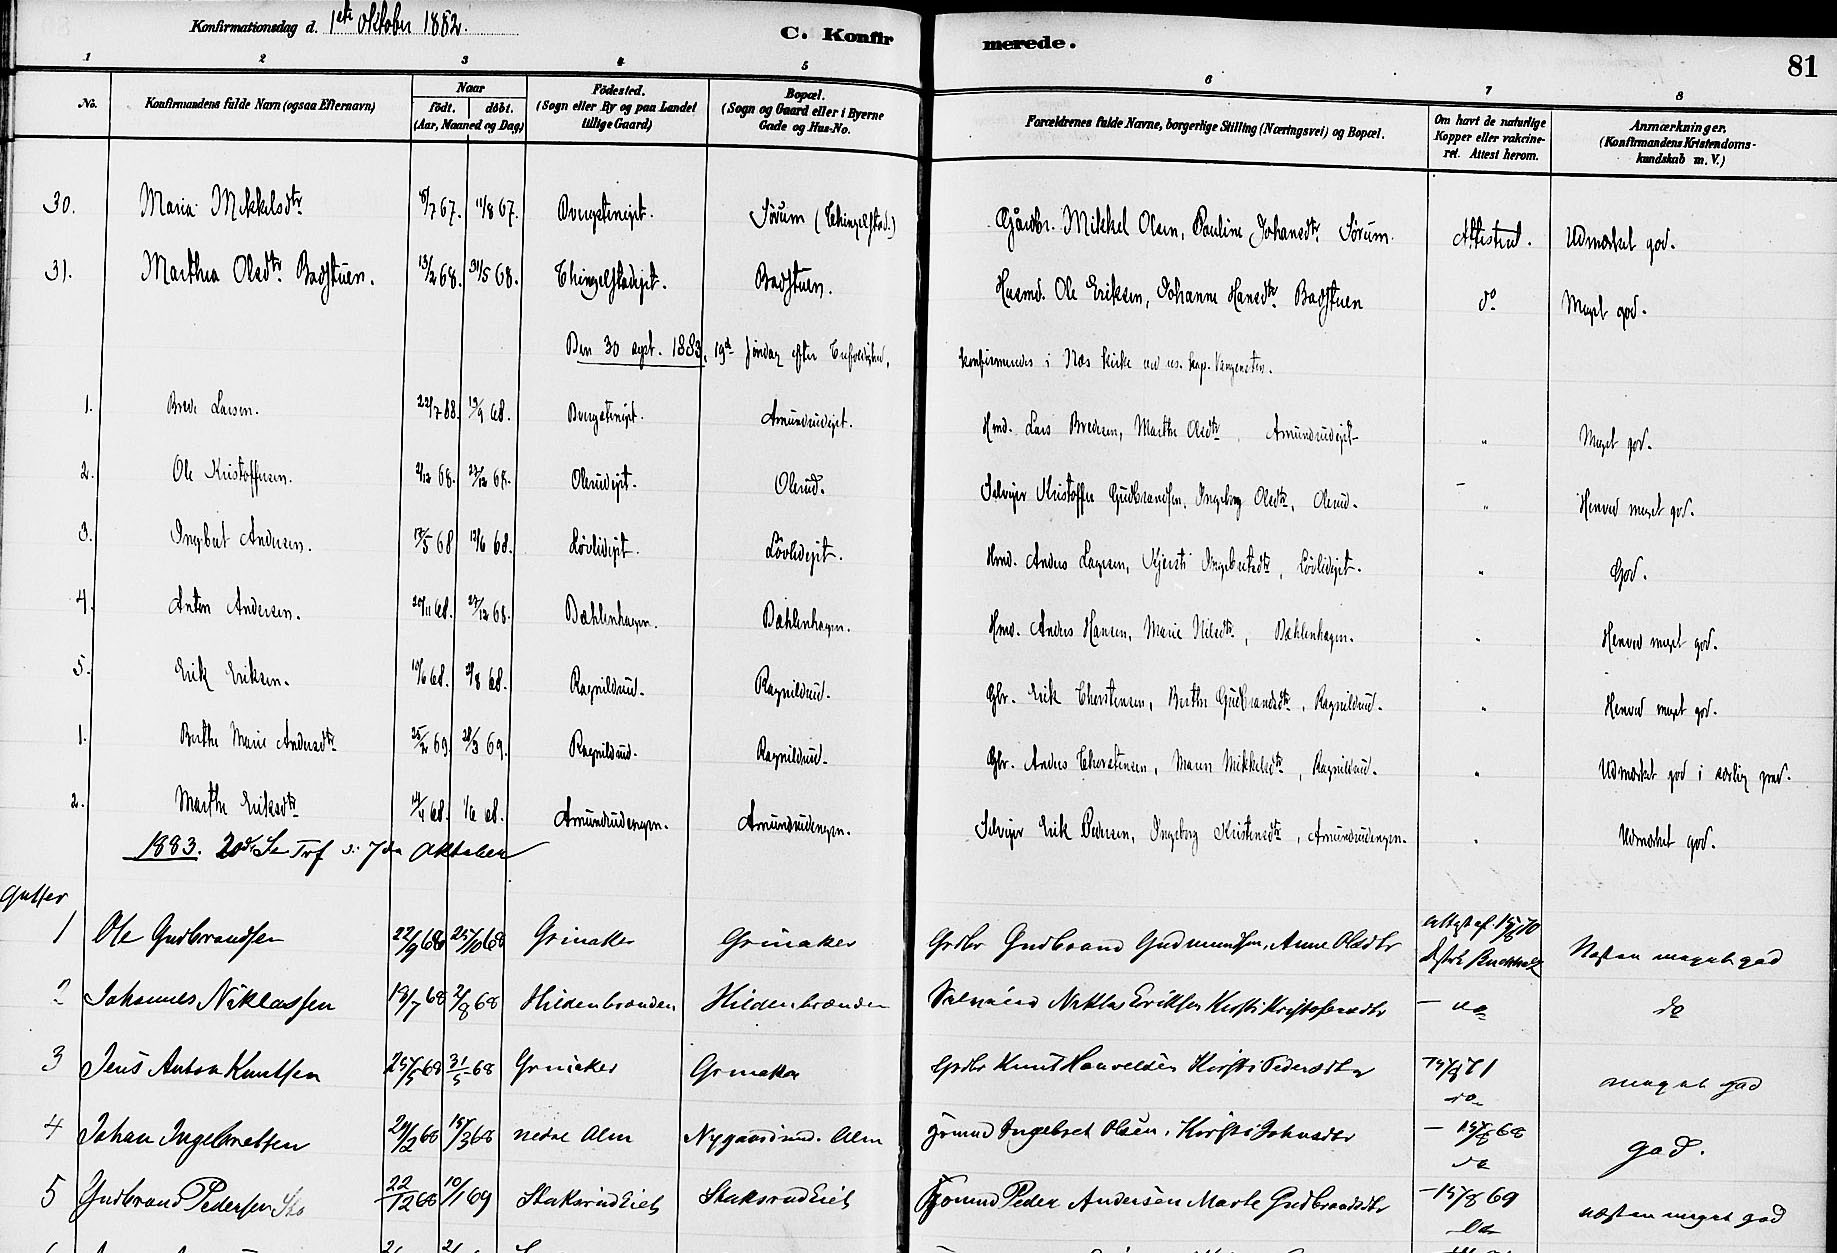 Konfirmationsdag d. 1ste Oktober 1882.
C. Konfirmerede.
81
1 2 3 4 5 6 7 8
No. Konfirmandens fulde Navn (ogsaa Efternavn) Naar födt. döbt. (Aar, Maaned og Dag) Födested. (Sogn eller By og paa Landet tillige Gaard) Bopæl. (Sogn og Gaard eller i Byerne Gade og Hus-No. Forældrenes fulde Navne, borgerlige Stilling (Næringsvei) og Bopæl. Om havt de naturlige Kopper eller vakcineret. Attest herom. Anmærkninger. (Konfirmandens Kristendomskundskab m. V.)
30. Maria Mikkelsdtr 8/7 67. 11/8 67. Sørum (Thingelstad.) Gårdbr. Mikkel Olsen, Pauline Johansdtr Sørum. Attesteret. Udmærket god.
31. Marthea Olsdtr Badstuen. 13/2 68. 31/5 68. Thingelstadejet. Badstuen. Husmd. Ole Eriksen, Johanne Hansdtr Badstuen do Meget god.
Den 30 sept. 1883, 19de søndag efter Trefoldighed, konfirmeredes i Næs kirke ved res. kap. Wangensten.
1. Brede Larsen. 22/7 88. 13/9 68. Amundrudejet. Hmd. Lars Bredesen, Marthe Olsdtr, Amundrudejet " Meget god.
2. Ole Kristoffersen. 2/12 68. 27/12 68. Olerudejet. Olerud. Selvejer Kristoffer Gudbrandsen, Ingeborg Olsdtr, Olerud. " Henved meget god.
3. Ingebret Andersen. 17/5 68 12/6 68. Løvlidejet. Løvlidejet. Hmd. Anders Larsen, Kjersti Ingebretsdtr, Løvlidejet. " God.
4. Anton Andersen. 20/11 68. 27/12 68. Dæhlenhagen. Dæhlenhagen. Hmd. Anders Hansen, Marie Nilsdtr, Dæhlenhagen. " Henved meget god.
5. Erik Eriksen. 10/6 68. 2/8 68. Ragnildrud. Ragnildrud. Gbr. Erik Thorstensen, Berthe Gudbrandsdtr, Ragnildrud. " Henved meget god.
1. Berthe Marie Andersdtr 25/2 69. 28/3 69. Ragnildrud. Ragnildrud. Gbr. Anders Thorstensen, Maren Mikkelsdtr, Ragnildrud. " Udmærket god i særlig grad.
2. Marthe Eriksdtr 14/4 68. 1/6 68. Amundrudengen. Amundrudengen. Selvejer Erik Pedersen, Ingeborg Kristensdtr, Amundrudengen. " Udmærket god.
1883. 20de S e Tref d. 7de Oktober
Gutter
1 Ole Gudbrandsen 22/9 68 25/10 68 Grinaker Grinaker Grdbr Gudbrand Gudmundsen, Anne Olsdtr attest af 15/8 70 Næsten meget god
2 Johannes Niklassen 18/7 68 2/8 68 Hildenbranden Hildenbranden Niklas Eriksen Kirsti Kristofersdtr — do do
3 Jens Anton Knutsen 25/5 68 31/5 68 Grinaker Grinaker Grdbr Knut Haavelsen Kirsti Pedersdtr do meget god
4 Johan Ingebretsen 24/2 68 15/3 68 nedre Alm Nygaard nd. Alm Ingebret Olsen, Kirsti Johnsdtr — 15/8 68 do god.
5 Gudbrand Pedersen 22/12 68 10/1 69 StaksrudEiet StaksrudEiet Peder Andersen Marte Gudbrandsdtr — 15/8 69 do næsten meget god